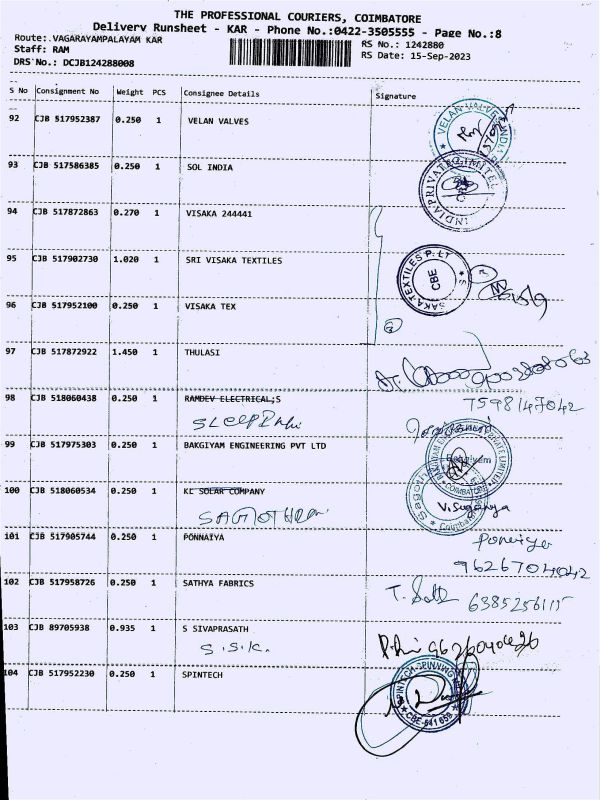 THE PROFESSIONAL COURIERS, COIMBATORE
Delivery Runsheet - KAR - Phone No.:0422-3505555 - Page No.:8
Route:.VAGARAYAMPALAYAM KAR
RS No.: 1242880
Staff: RAM
RS Date: 15-Sep-2023
DRS No.: DCJB124288008
S No Consignment No Weight PCS Consignee Details Signature
92 CJB 517952387 0.250 1 VELAN VALVES
93 CJB 517586385 0.250 1 SOL INDIA
94 CJB 517872863 0.270 1 VISAKA 244441
95 CJB 517902730 1.020 1 SRI VISAKA TEXTILES
CBE
96 CJB 517952100 0.250 1 VISAKA TEX
97 CJB 517872922 1.450 1 THULASI
98 CJB 518060438 0.250 1 RAMDEV ELECTRICAL;S
7598147042
99 CJB 517975303 0.250 1 BAKGIYAM ENGINEERING PVT LTD
100 CJB 518060534 0.250 1 KC SOLAR COMPANY
V.Suganya
101 CJB 517905744 0.250 1 PONNAIYA
9626704042
102 CJB 517958726 0.250 1 SATHYA FABRICS
6385256115
103 CJB 89705938 0.935 1 S SIVAPRASATH
S.S.K.
104 CJB 517952230 0.250 1 SPINTECH